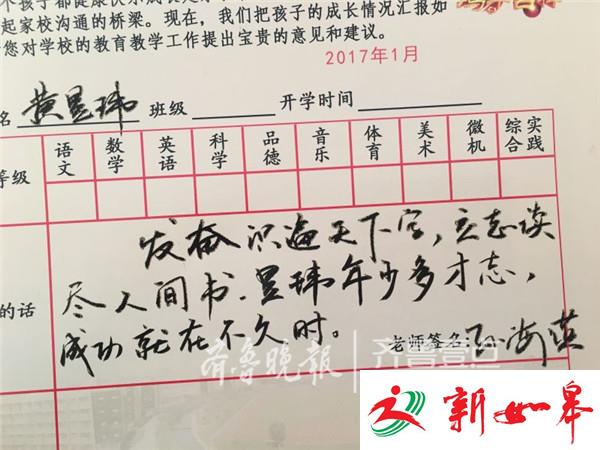 个孩子都健康快乐成长是
起家校沟通的桥梁。现在,我们把孩子的成长情况汇报如
您对学校的教育教学工作提出宝贵的意见和建议。
2017年1月
名 黄昱玮 班级 开学时间
等级 语文 数学 英语 科学 品德 音乐 体育 美术 微机 综合实践
发奋识遍天下字,立志读
尽人间书.昱玮年少多才志,
的话
成功就在不久时。
老师签名: 孙海英
齐鲁晚报 齐鲁壹点
新如皋